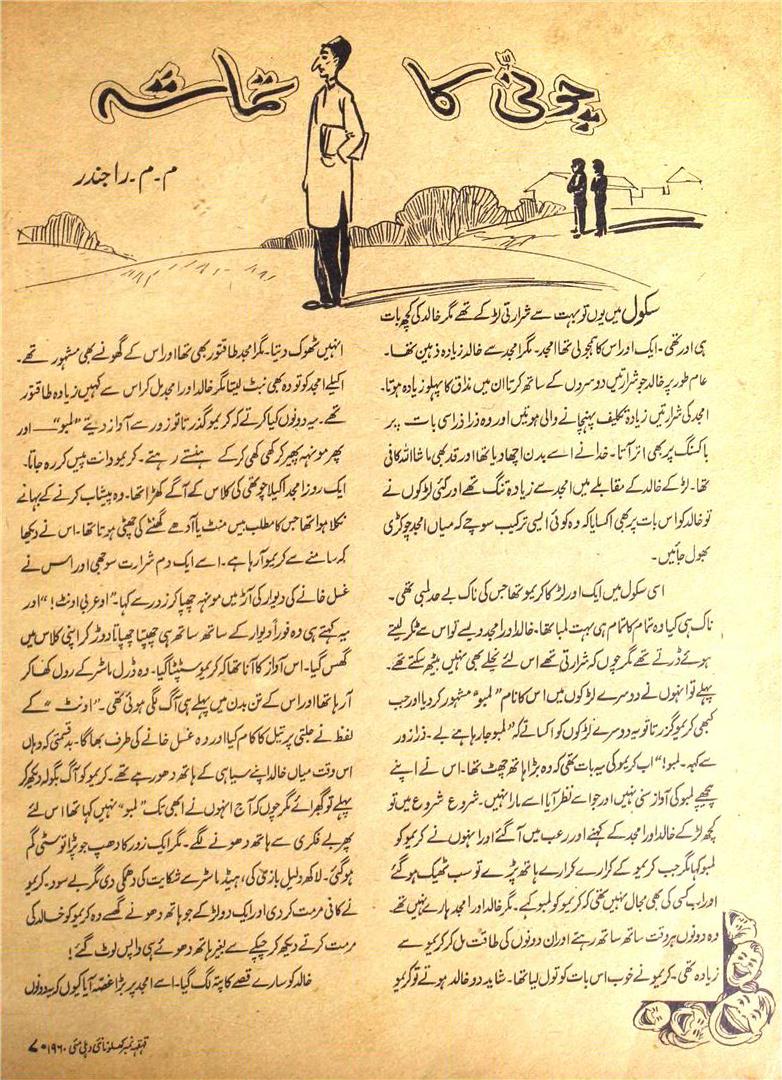 چونّی کا تماشہ
م۔م۔راجندر
سکول میں یوں تو بہت سے شرارتی لڑکے تھے مگر خالد کی کچھ بات
ہی اور تھی۔ ایک اور اس کا ہمجولی تھا امجد۔ مگر امجد سے خالد زیادہ ذہین تھا۔
عام طور پر خالد جو شرارتیں دوسروں کے ساتھ کرتا ان میں مذاق کا پہلو زیادہ ہوتا۔
امجد کی شرارتیں زیادہ تکلیف پہنچانے والی ہوتیں اور وہ ذرا ذرا سی بات پر
باکسنگ پر بھی اتر آتا۔ خدا نے اسے بدن اچھا دیا تھا اور قد بھی ماشاءاللہ کافی
تھا۔ لڑکے خالد کے مقابلے میں امجد سے زیادہ تنگ تھے اور کئی لڑکوں نے
تو خالد کو اس بات پر بھی اکسایا کہ وہ کوئی ایسی ترکیب سوچے کہ میاں امجد چوکڑی
بھول جائیں۔
اسی سکول میں ایک اور لڑکا کریمو تھا جس کی ناک بے حد لمبی تھی۔
ناک ہی کیا وہ تمام کا تمام ہی بہت لمبا تھا۔ خالد اور امجد ویسے تو اس سے ٹکر لیتے
ہوئے ڈرتے تھے مگر چوں کہ شرارتی تھے اس لئے نچلے بھی نہیں بیٹھ سکتے تھے۔
پہلے تو انہوں نے دوسرے لڑکوں میں اس کا نام ”لمبو“ مشہور کر دیا اور جب
کبھی کریمو گزرتا تو یہ دوسرے لڑکوں کو اکساتے کہ ”لمبو جا رہا ہے بے۔ ذرا زور
سے کہہ۔ لمبو!“ اب کریمو کی یہ بات تھی کہ وہ بڑا ہاتھ چھٹ تھا۔ اس نے اپنے
پیچھے لمبو کی آواز سنی نہیں اور جو اسے نظر آیا اسے مارا نہیں۔ شروع شروع میں تو
کچھ لڑکے خالد اور امجد کے کہنے اور رعب میں آ گئے اور انہوں نے کریمو کو
لمبو کہا مگر جب کریمو کے کرارے کرارے ہاتھ پڑے تو سب ٹھیک ہو گئے
اور اب کسی کی بھی مجال نہیں تھی کہ کریمو کو لمبو کہے۔ مگر خالد اور امجد ہارے نہیں تھے
وہ دونوں ہر وقت ساتھ ساتھ رہتے اور ان دونوں کی طاقت مل کر کریمو سے
زیادہ تھی۔ کریمو نے خوب اس بات کو تول لیا تھا۔ شاید دو خالد ہوتے تو کریمو
انہیں ٹھوک دیتا۔ مگر امجد طاقتور بھی تھا اور اس کے گھونسے بھی مشہور تھے۔
اکیلے امجد کو تو وہ بھی نبٹ لیتا مگر خالد اور امجد مل کر اس سے کہیں زیادہ طاقتور
تھے۔ یہ دونوں کیا کرتے کہ کریمو گذرتا تو زور سے آواز دیتے ”لمبو“ — اور
پھر مونہہ پھیر کر کھی کھی کر کے ہنستے رہتے۔ کریمو دانت پیس کر رہ جاتا۔
ایک روز امجد اکیلا چوتھی کی کلاس کے آگے کھڑا تھا۔ وہ پیشاب کرنے کے بہانے
نکلا ہوا تھا جس کا مطلب بیس منٹ یا آدھے گھنٹے کی چھٹی ہوتا تھا۔ اس نے دیکھا
کہ سامنے سے کریمو آ رہا ہے۔ اسے ایک دم شرارت سوجھی اور اس نے
غسل خانے کی دیوار کی آڑ میں مونہہ چھپا کر زور سے کہا۔ ”او عربی اونٹ!“ اور
یہ کہتے ہی وہ فوراً دیوار کے ساتھ ساتھ ہی چھپتا چھپاتا دوڑ کر اپنی کلاس میں
گھس گیا۔ اس آواز کا آنا تھا کہ کریمو سٹپٹا گیا۔ وہ ڈرل ماسٹر کے رول کھا کر
آ رہا تھا اور اس کے تن بدن میں پہلے ہی آگ لگی ہوئی تھی۔ ”اونٹ“ کے
لفظ نے جلتی پر تیل کا کام کیا اور وہ غسل خانے کی طرف بھاگا۔ بدقسمتی کہ وہاں
اس وقت میاں خالد اپنے سیاہی کے ہاتھ دھو رہے تھے۔ کریمو کو آگ بگولہ دیکھ کر
پہلے تو گھبرائے مگر چوں کہ آج انہوں نے ابھی تک ”لمبو“ نہیں کہا تھا اس لئے
پھر بے فکری سے ہاتھ دھونے لگے۔ مگر ایک زور کا دھپ جو پڑا تو سٹی گم
ہو گئی۔ لاکھ دلیل بازی کی، ہیڈ ماسٹر سے شکایت کی دھمکی دی مگر بے سود۔ کریمو
نے کافی مرمت کر دی اور ایک دو لڑکے جو ہاتھ دھونے گھسے وہ کریمو کو خالد کی
مرمت کرتے دیکھ کر چپکے سے بغیر ہاتھ دھوئے ہی واپس لوٹ گئے!
خالد کو سارے قصے کا پتہ لگ گیا۔ اسے امجد پر بڑا غصّہ آیا کیوں کہ یہ دونوں
قہقہہ نمبر کھلونا نئی دہلی مئی ۱۹۶۰ء ۷